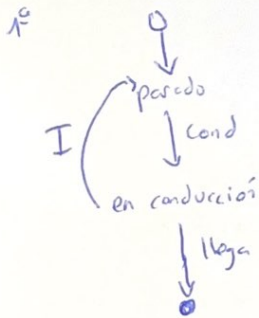 1ª
parado
cond
I
en conducción
llega